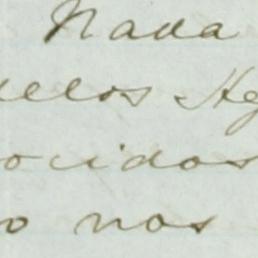 Nada
dellos
ocidos
o nos